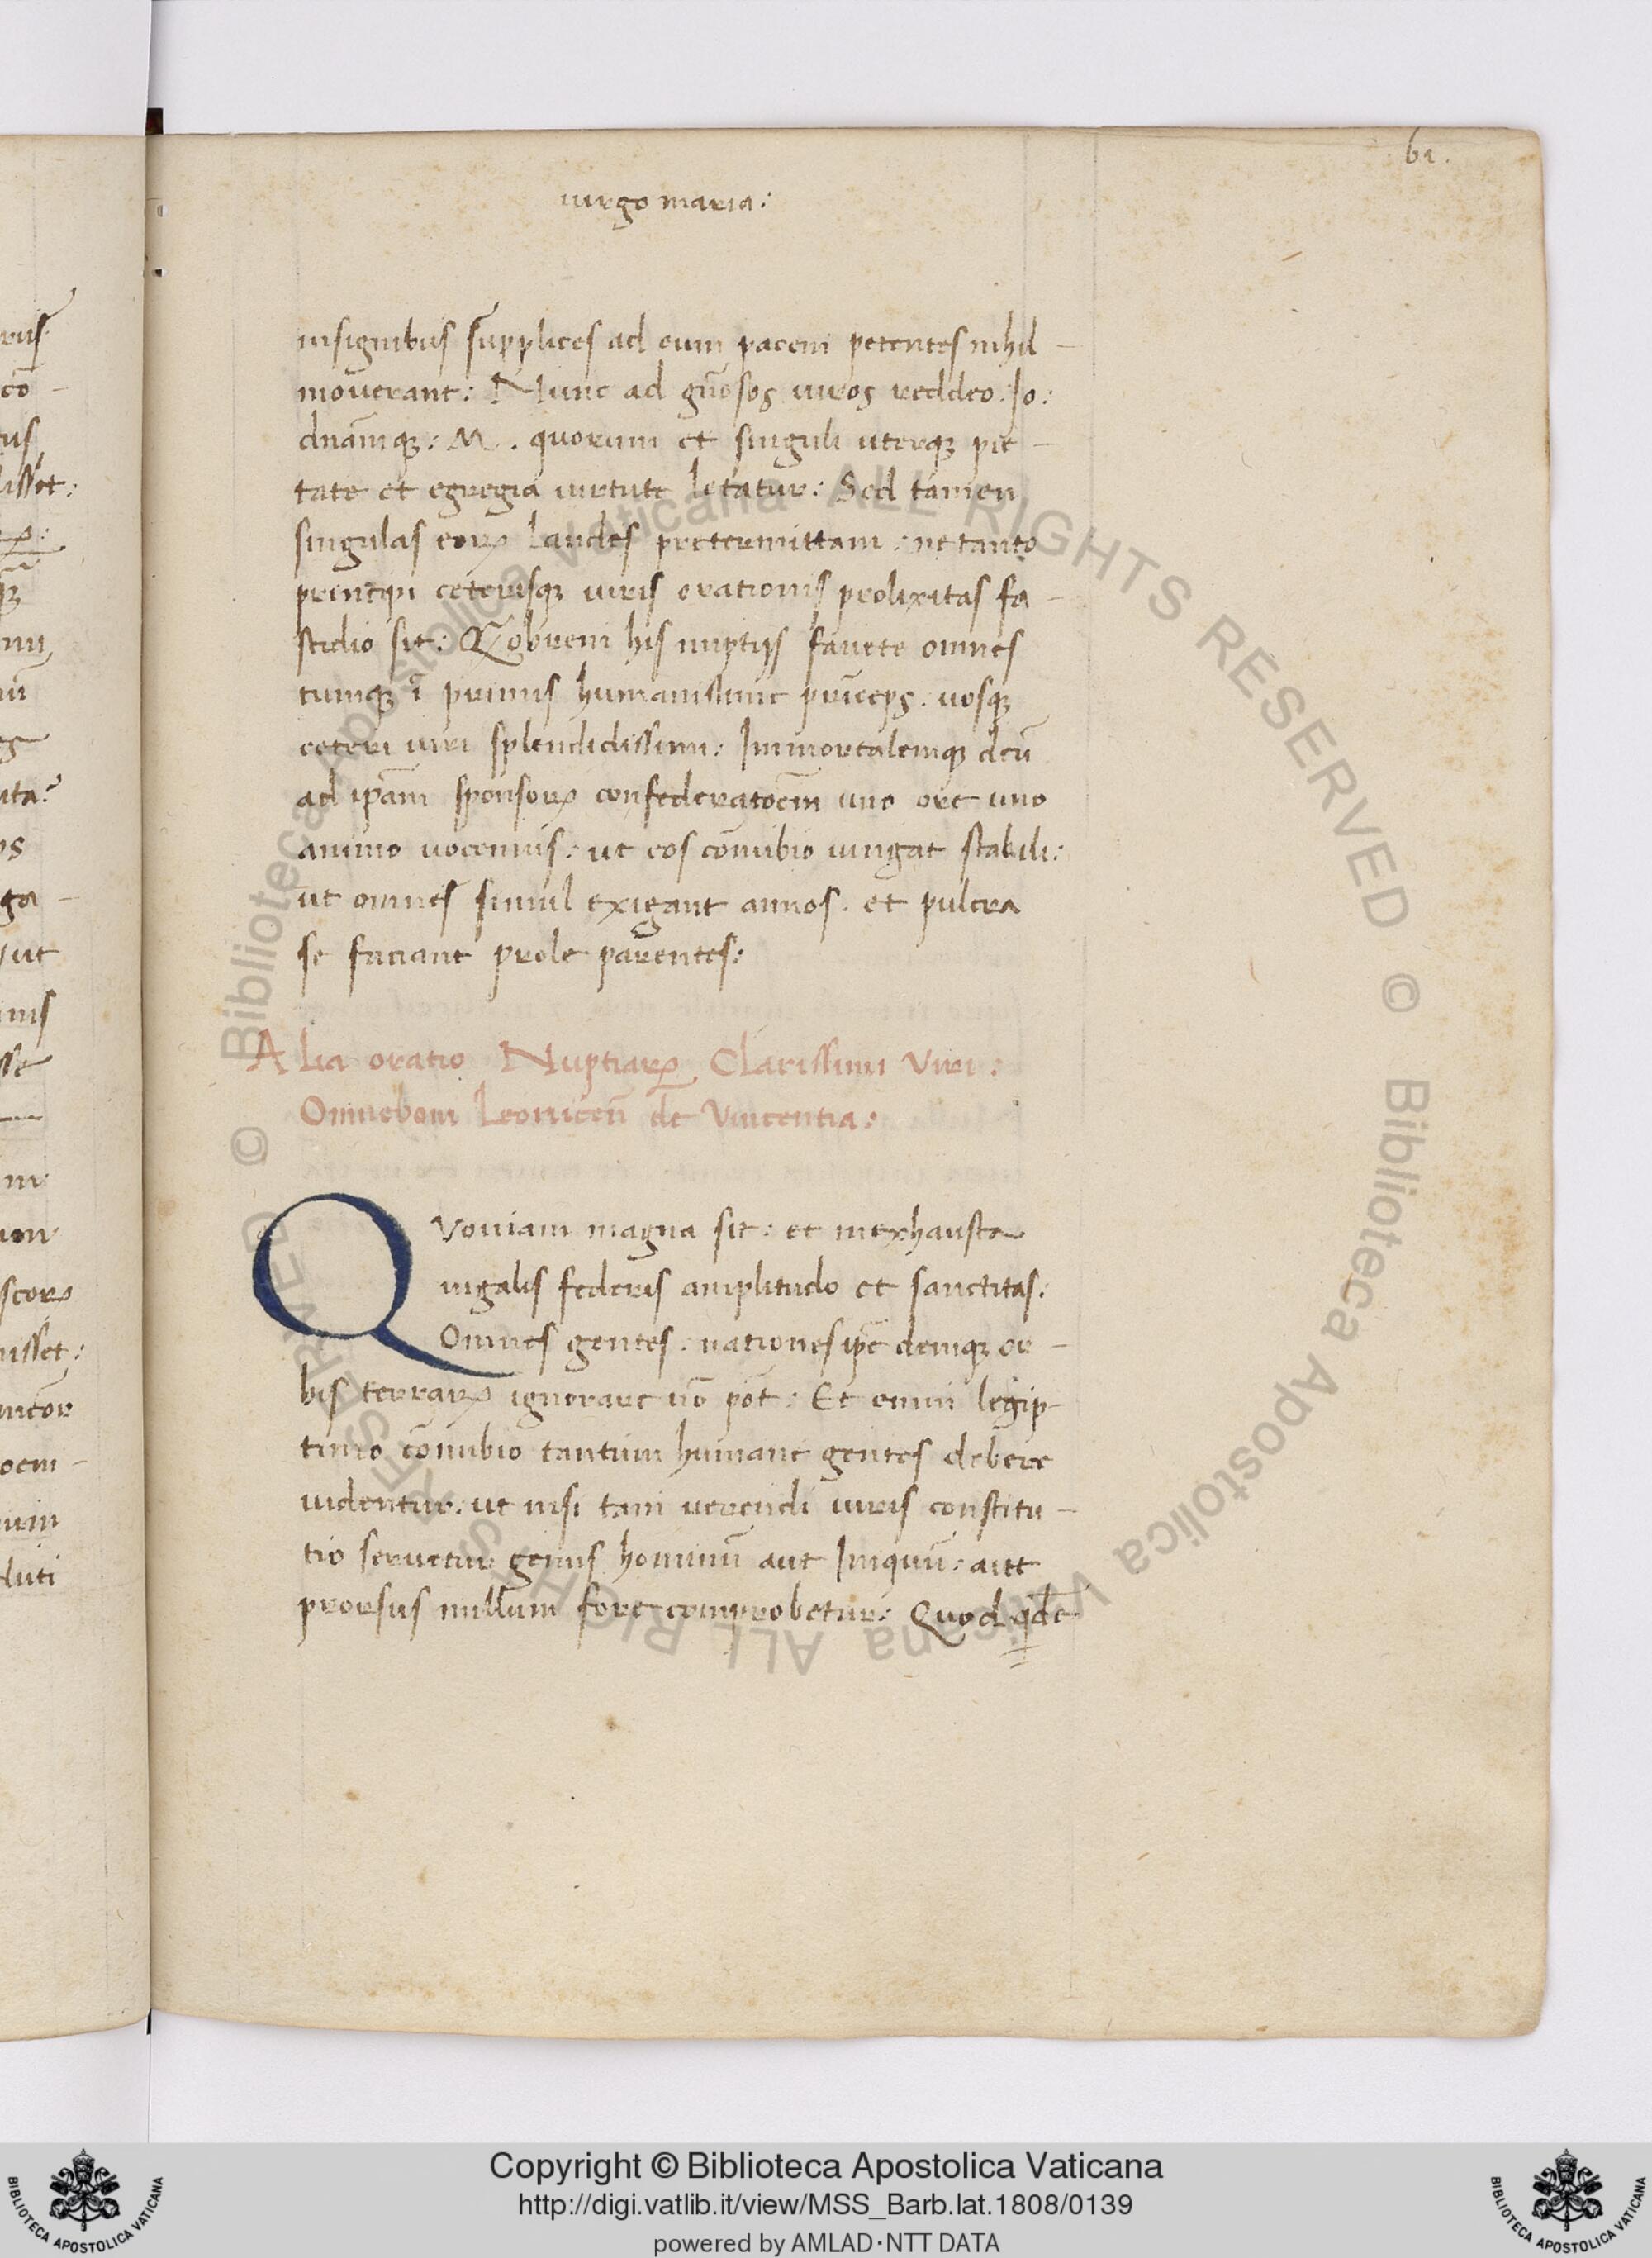 61.
uirgo maria:
insignibus supplices ad eum pacem petentes nihil -
mouerant: Nunc ad gn̄osos uiros reddeo. Io:
dnāmqꝫ: M. quorum et singuli uterqꝫ pie -
tate et egregia uirtute letatur: Sed tamen
singulas eoꝝ laudes pretermittam: ne tanto
principi ceterisqꝫ uiris orationis prolixitas fa -
stidio sit: Q̄obrem his nuptijs fauete omnes
tumqꝫ ī primis humanissime prīceps. uosqꝫ
ceteri uiri splendidissimi: Immortalemqꝫ deū
ad ipām sponsoꝝ confederatōem uno ore uno
animo uocemus: ut eos cōnubio iungat stabili:
ut omnes simul exigant annos. et pulcra
se faciant prole parentes:
Alia oratio Nuptiaꝝ Clarissimi Viri:
Omneboni Leonicen̄ de Vincentia:
Quoniam magna sit: et inexhausta
iugalis federis amplitudo et sanctitas:
Omnes gentes. nationes ipē deniqꝫ or -
bis terraꝝ ignorare nō pōt: Et enim legip-
timo cōnubio tantum humane gentes debere
uidentur. ut nisi tam uerendi iuris constitu -
tio seruetur genus hominū aut Iniquū: aut
prorsus nullum fore comprobetur: Quod qd̄e
Copyright © Biblioteca Apostolica Vaticana
http://digi.vatlib.it/view/MSS_Barb.lat.1808/0139
powered by AMLAD·NTT DATA